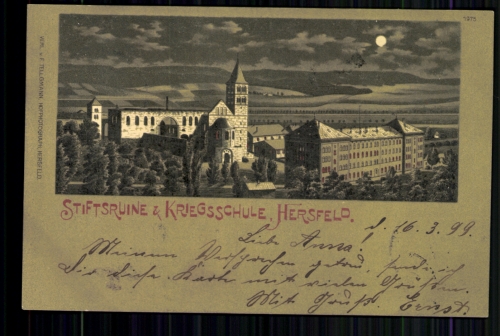 STIFTSRUINE & KRIEGSSCHULE, HERSFELD.
d. 16.3.99.
Liebe Anna!
Meinem Versprechen getreu, sende ich
Dir diese Karte mit vielen Grüßen.
Mit Gruß. Ernst.